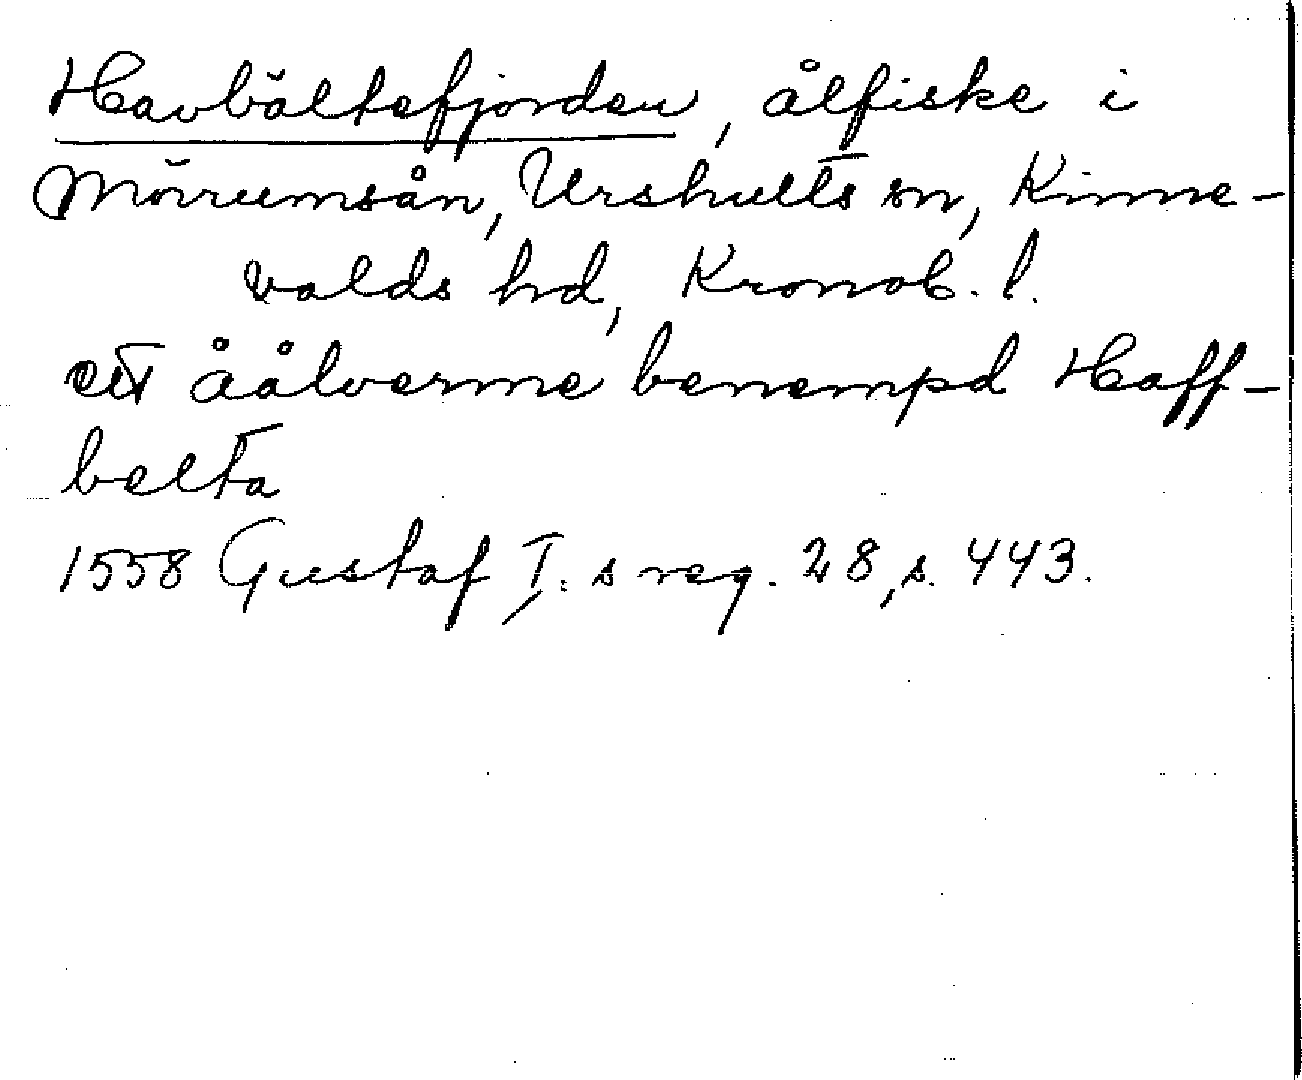 Havbältefjorden, ålfiske i
Mörrumsån, Urshults sn, Kinne-
valds hd, Kronob. l.
ett åålverme benempd Haff-
belta
1558 Gustaf I:s reg. 28, s. 443.